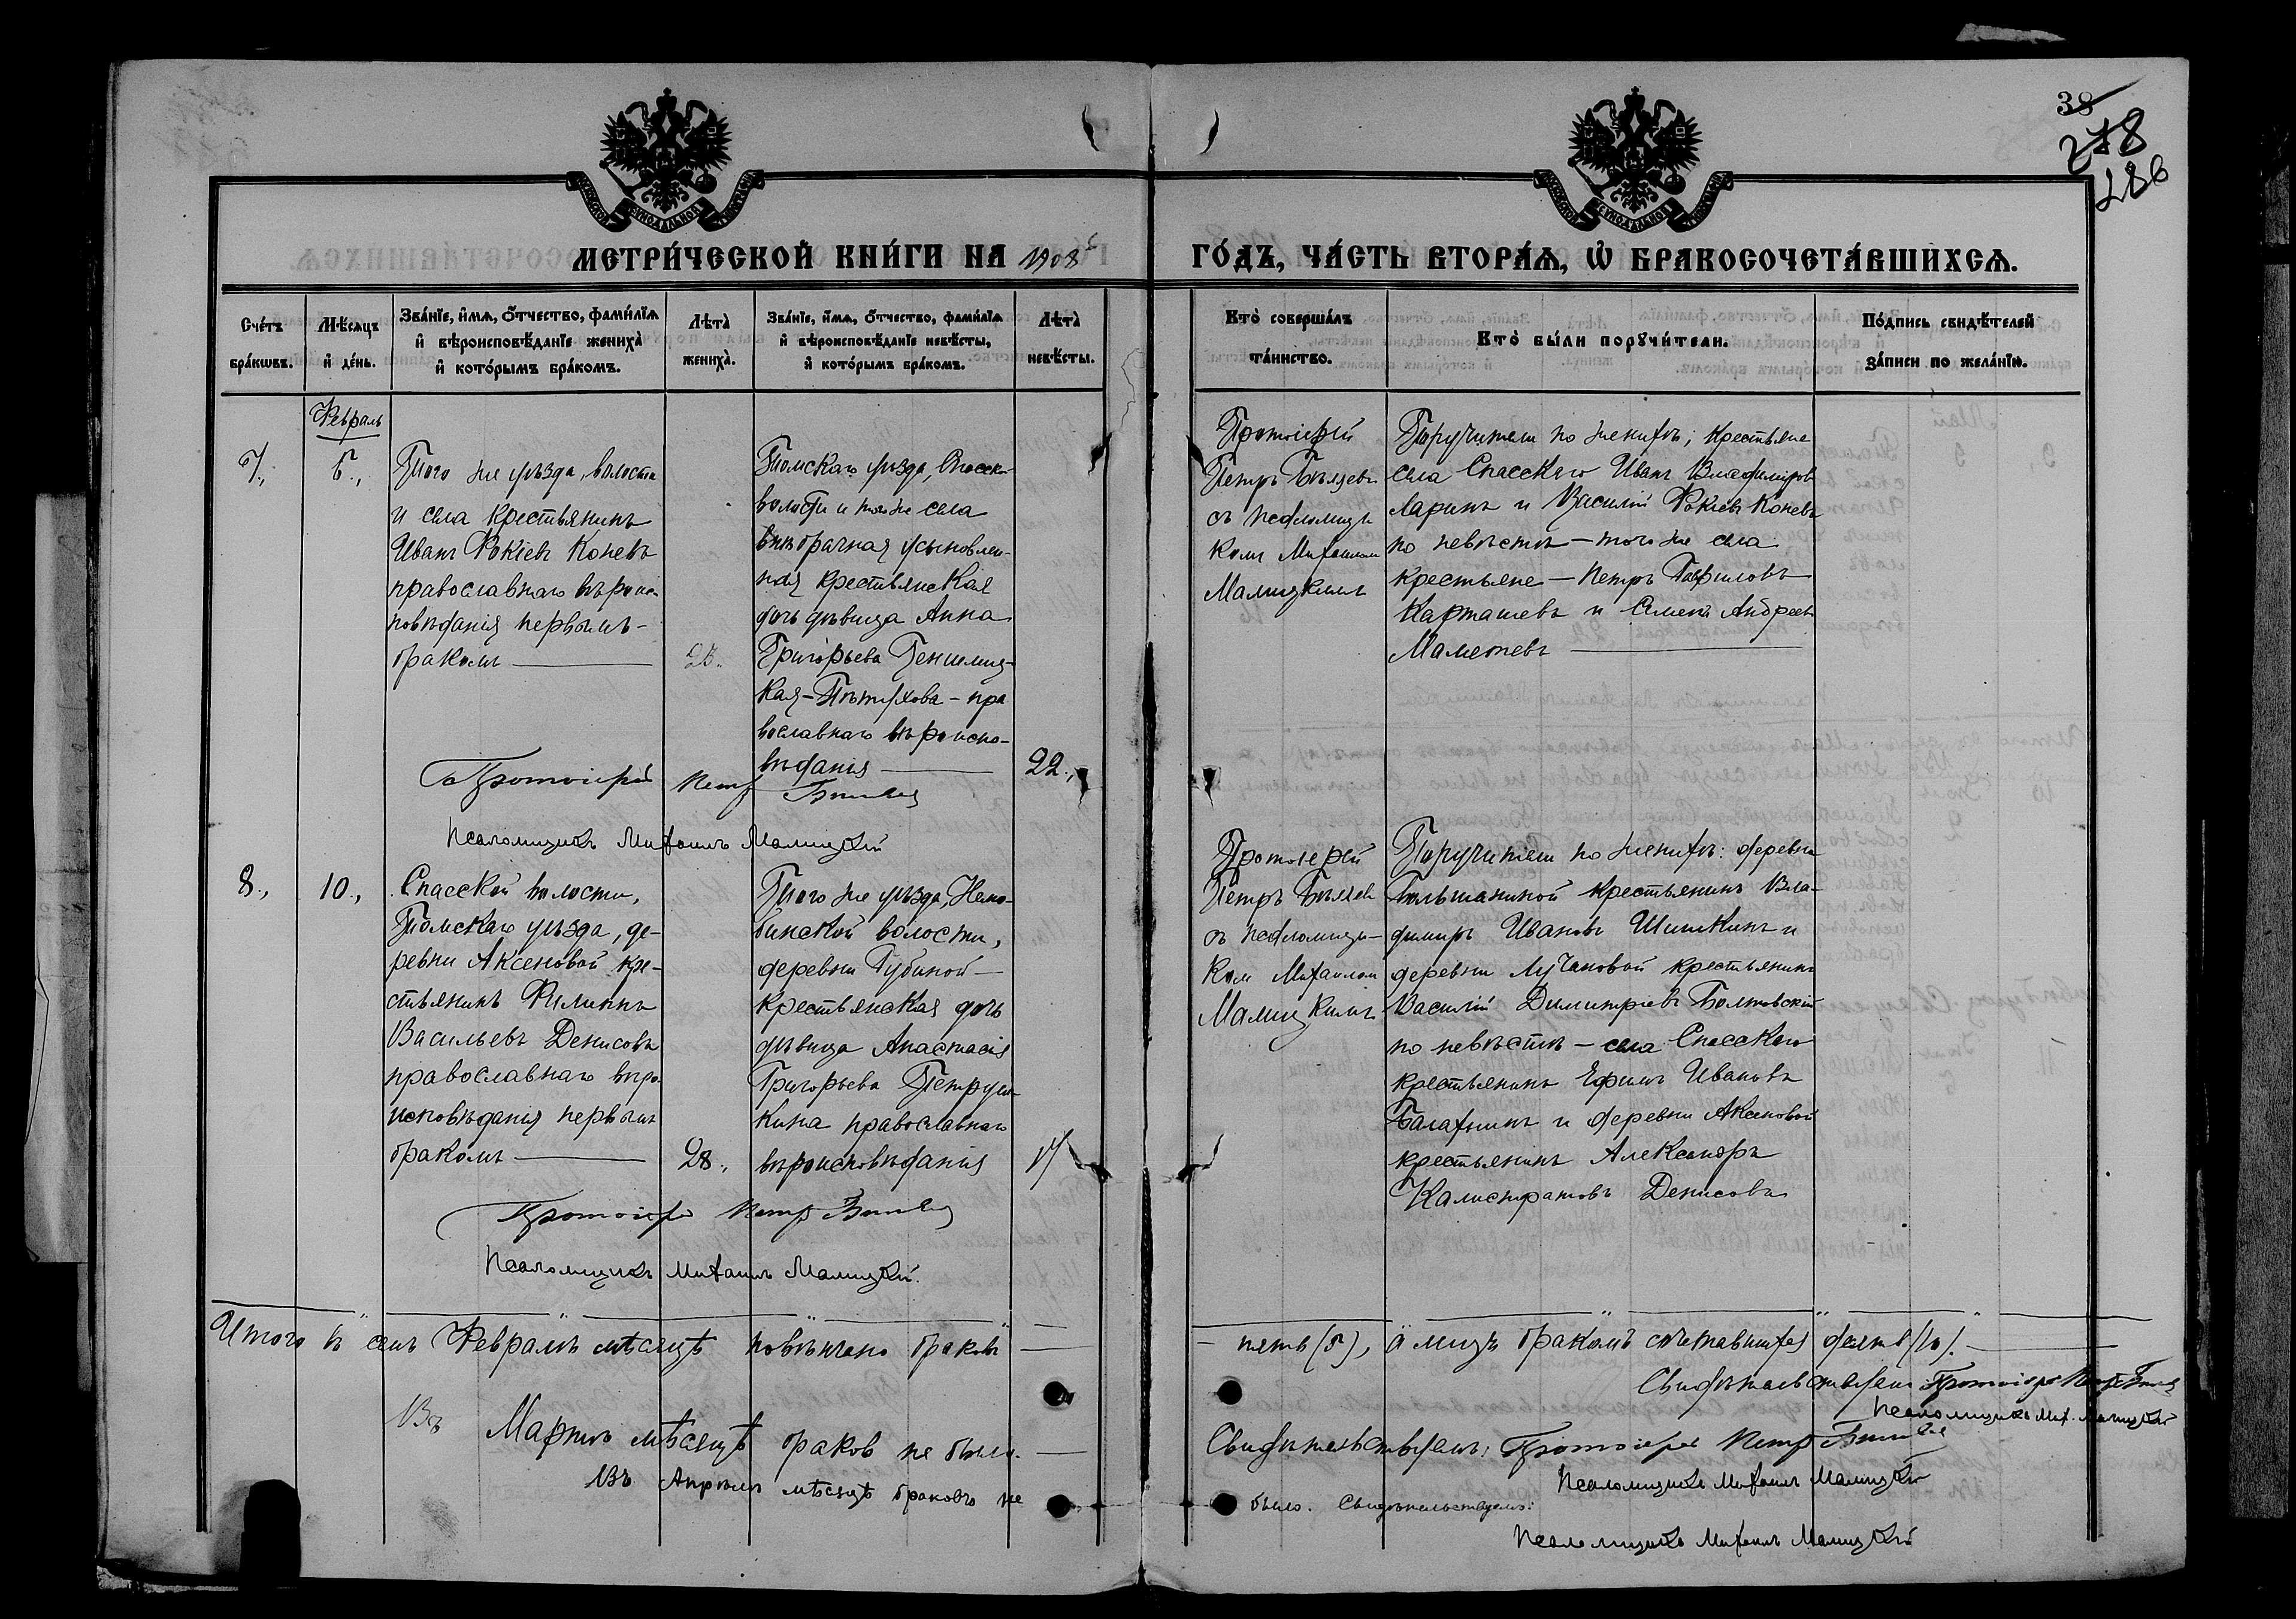 38
278
286
МЕТРИ́ЧЕСКОЙ КНИ́ГИ НА 1908й
ГО́ДЪ, ЧА́СТЬ ВТОРА́Ѧ, Ѽ БРАКОСОЧЕТА́ВШИХСѦ.
Сче́тъ бра́кѡвъ.
Мѣ́сѧцъ и҆ де́нь.
Зва́нїе, и҆́мѧ, ѻ҆́тчество, фами́лїѧ
и҆ вѣ́роисповѣ́данїе жениха̀
и҆ кото́рымъ бра́комъ.
Лѣта̀ жениха̀.
Зва́нїе, и҆́мѧ, ѻ҆́тчество, фами́лїѧ
и҆ вѣ́роисповѣ́данїе невѣ́сты,
и҆ кото́рымъ бра́комъ.
Лѣта̀ невѣ́сты.
Кто̀ соверша́лъ та́инство.
Кто̀ бы́ли порꙋчи́тели.
По́дпись свидѣ́телей
за́писи по жела́нїю.
Февраль
7.,
Того же уѣзда, волости
и села крестьянинъ
Иванъ Фокіевъ Коневъ
православнаго вѣроис-
повѣданія первымъ-
бракомъ
Томскаго уѣзда, Спасской
волости и того же села
внѣбрачная усыновлен-
ная крестьянская
дочь дѣвица Анна
Григорьева
Кая-Пѣтухова-пра
вославнаго вѣроиспо-
вѣданія
22.,
Протоіерей
Петръ Бѣляевъ
съ псаломщи
комъ Михаиломъ
Малицкимъ
Поручители по женихѣ; крестьяне
села Спасскаго Иванъ Владиміровъ
Ларинъ и Василій Фокіевъ Коневъ
по невѣстѣ-того же села
крестьяне-Петръ Гавриловъ
Карташевъ и Семенъ Андреевъ
Протоіерей Петръ Бѣляевъ
Псаломщикъ Михаилъ Малицкій
8.,
10.,
Спасской волости,
Томскаго уѣзда, де-
ревни Аксеновой кре-
стьянинъ Филиппъ
Васильевъ Денисовъ
православнаго вѣро
исповѣданія первымъ
бракомъ
28.,
Того же уѣзда, Нелю-
бинской волости,
деревни Губиной-
крестьянская дочь
дѣвица Анастасія
Григорьева Петруш-
кина православнаго
вѣроисповѣданія
17
Протоіерей
Петръ Бѣляевъ
съ псаломщи-
комъ Михаиломъ
Малицкимъ
Поручители по женихѣ: деревни
Большаниной крестьянинъ Вла-
диміръ Ивановъ Шишкинъ и
деревни Лучановой крестьянинъ
Василій Димитріевъ Болтовскій
по невѣстѣ-села Спасскаго
крестьянинъ Ефимъ Ивановъ
Балахнинъ и деревни Аксеновой
крестьянинъ Александръ
Калистратовъ Денисовъ
Протоіерей Петръ Бѣляевъ
Псаломщикъ Михаилъ Малицкій.
Итого въ семъ Февралѣ мѣсяцѣ повѣнчано браковъ
- пять (5), а лицъ бракомъ сочетавшихся десять (10).
Свидѣтельствуемъ: Протоіерей Петръ Бѣляевъ
Псаломщикъ Мих. Малицкій
Въ Мартѣ мѣсяцѣ браков не было.
Свидѣтельствуемъ: Протоіерей Петръ Бѣляевъ
Псаломщикъ Михаилъ Малицкій
Въ Апрѣлѣ мѣсяцѣ браковъ не
было. Свидѣтельствуемъ:
Псаломщикъ Михаилъ Малицкій